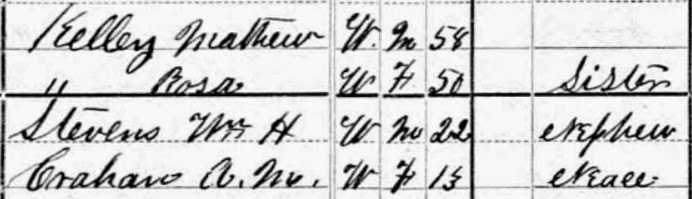 Kelley Mathew W. M 58
" Rosa W F 50 Sister
Stevens Wm H W M 22 Nephew
Graham A. M. W F 13 Neace